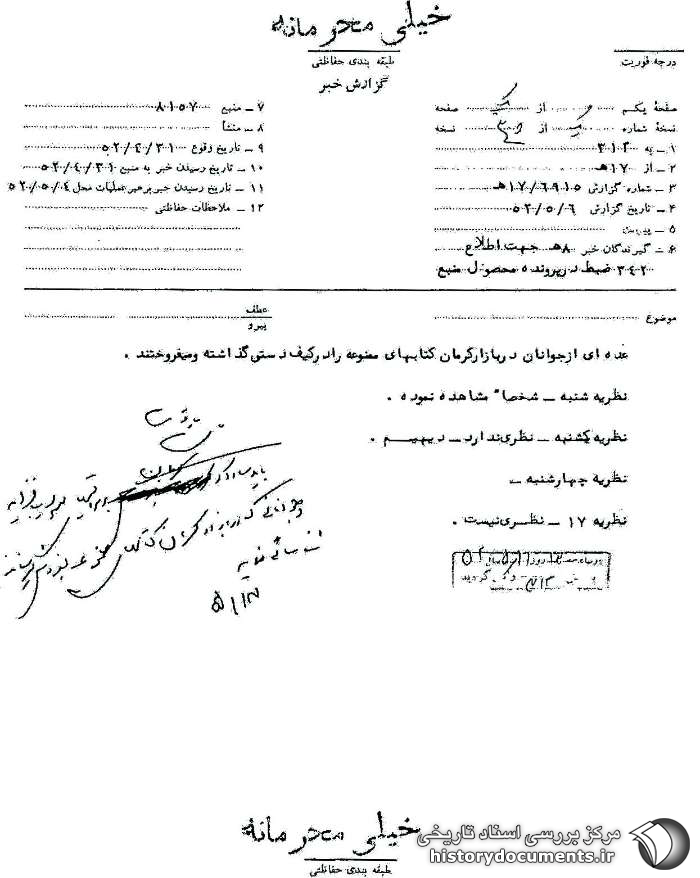 خیلی محرمانه
طبقه بندی حفاظتی
درجه فوریت
گزارش خبر
صفحهٔ یکم از یک صفحه
نسخهٔ شماره از نسخه
۱ – به ۳۱۲
۲ – از ۱۷هـ
۳ – شماره گزارش ۱۷/۶۹۱۵هـ
۴ – تاریخ گزارش ۵۲/۵/۶
۵ – پیوست
۶ – گیرندگان خبر ۸هـ جهت اطلاع
۳۴۲ ضبط در پرونده محصول منبع
۷ – منبع ۸۱۵۷
۸ – منشأ
۹ – تاریخ وقوع ۵۲/۴/۳۱
۱۰ – تاریخ رسیدن خبر به منبع ۵۲/۴/۳۱
۱۱ – تاریخ رسیدن خبر برهبر عملیات محل ۵۲/۵/۰۴
۱۲ – ملاحظات حفاظتی
موضوع
عطف
پیرو
عده ای ازجوانان دربازارکرمان کتابهای ممنوعه رادرکیف دستی گذاشته ومیفروختند .
نظریه شنبه – شخصا" مشاهده نموده .
نظریه یکشنبه – نظری ندارد – دیهیم .
نظریه چهارشنبه –
نظریه ۱۷ – نظری نیست .
۵/۱۳
خیلی محرمانه
طبقه بندی حفاظتی
مرکز بررسی اسناد تاریخی
historydocuments.ir